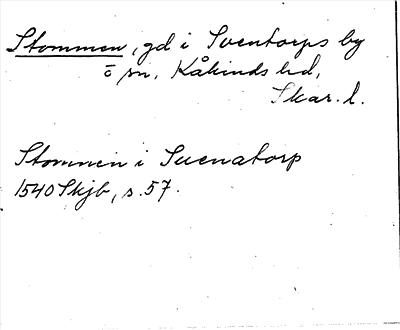 Stommen, gd i Sventorps by
o sn, Kåkinds hd,
Skar. l.
Stommen i Suenatorp
1540 Skjb, s. 57.